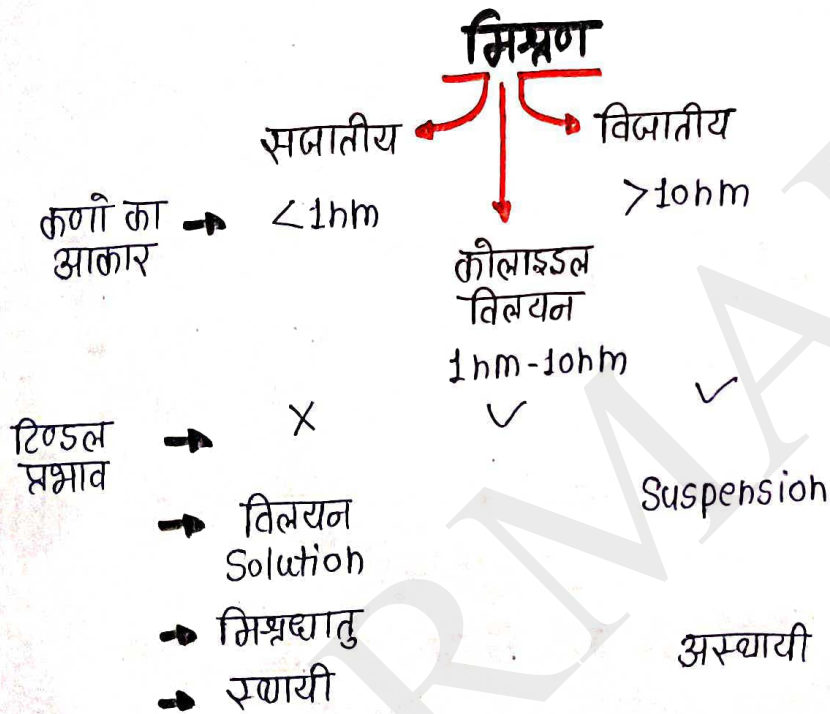 मिश्रण
सजातीय
विजातीय
कणो का
आकार
<1nm
>10nm
कोलाइडल
विलयन
1nm-10nm
टिण्डल
प्रभाव
X
✓
✓
विलयन
Solution
Suspension
मिश्रधातु
अस्थायी
स्थायी